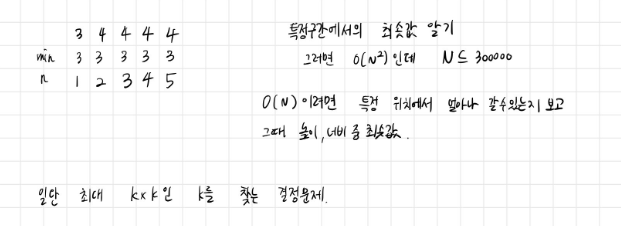 3 4 4 4 4
min 3 3 3 3 3
n 1 2 3 4 5
특정구간에서의 최솟값 알기
그러면 O(N²)인데 N ≤ 300000
O(N)이려면 특정 위치에서 얼마나 갈수있는지 보고
그때 높이, 너비 중 최솟값.
일단 최대 k×k인 k를 찾는 결정문제.